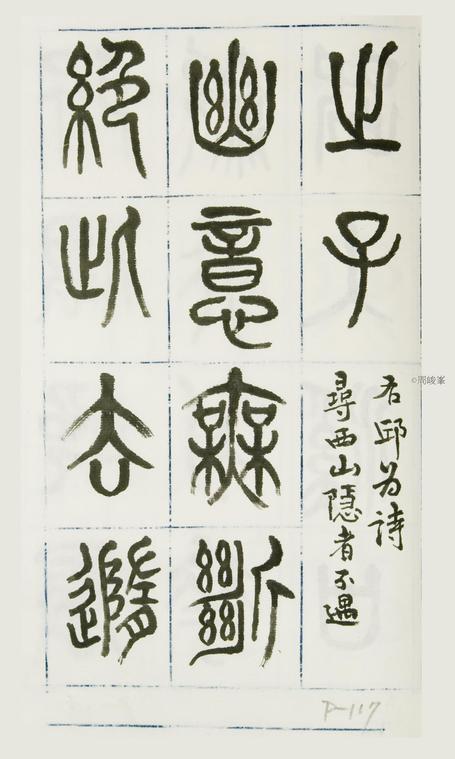 之子
右邱為詩
尋西山隱者不遇
幽意無斷
絕此去隨
P-117
©周峻峯